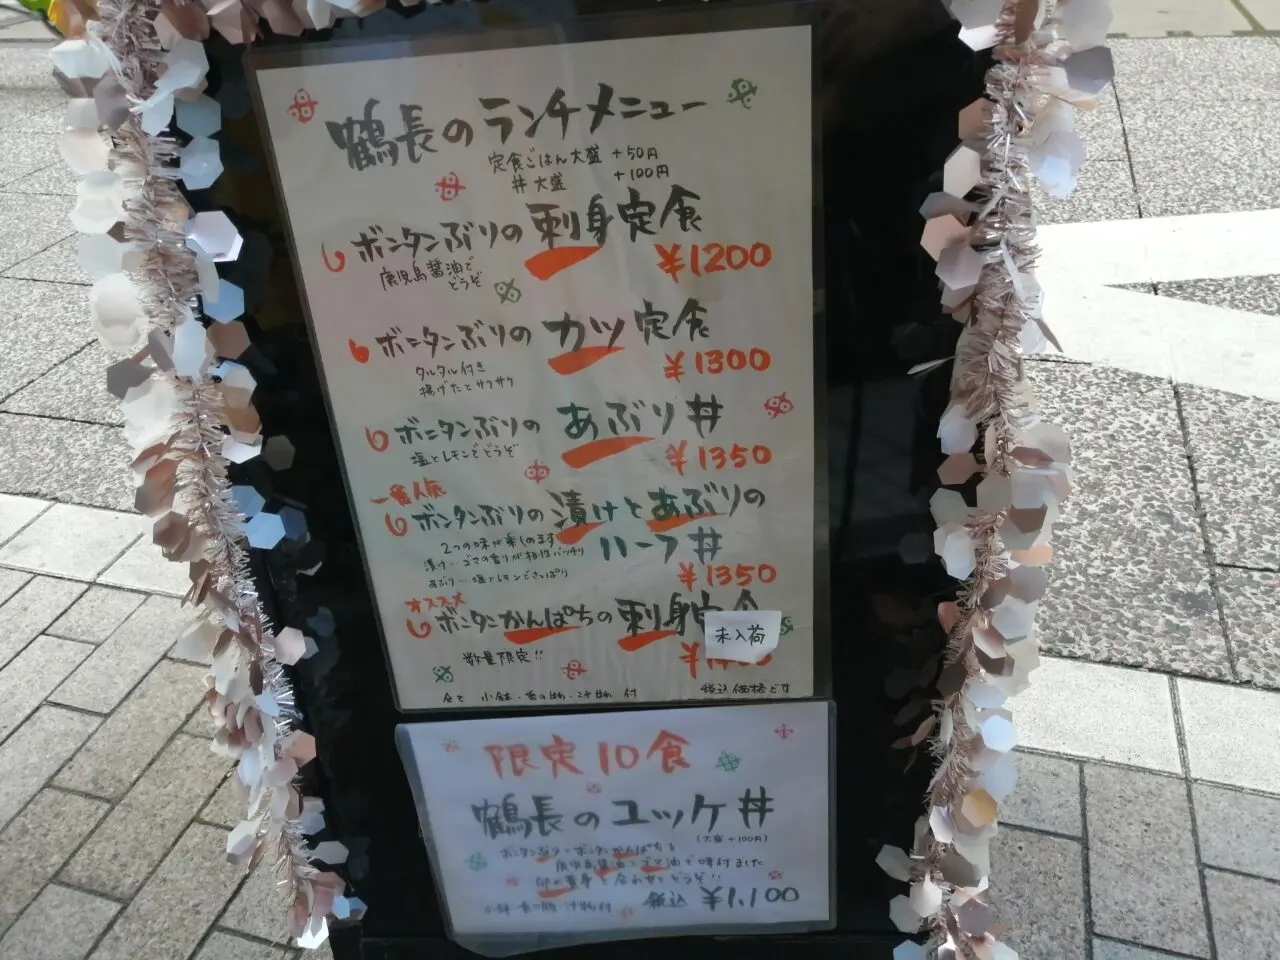 鶴長のランチメニュー
定食ごはん大盛 +50円
丼大盛 +100円
ボンタンぶりの刺身定食
鹿児島醤油で
どうぞ
¥1200
ボンタンぶりのカツ定食
タルタル付き
揚げたてサクサク
¥1300
ボンタンぶりのあぶり丼
塩とレモンでどうぞ
¥1350
一番人気
ボンタンぶりの漬けとあぶりの
ハーフ丼
2つの味が楽しめます
漬け…ゴマの香りが相性バッチリ
あぶり…塩とレモンでさっぱり
¥1350
オススメ
ボンタンかんぱちの刺身定食
未入荷
数量限定!!
全て 小鉢・香の物・汁物 付
税込価格です
限定10食
鶴長のユッケ丼
(大盛+100円)
ボンタンぶりとボンタンかんぱちを
鹿児島醤油とゴマ油で味付ました
卵の黄身と合わせてどうぞ!!
小鉢・香の物・汁物付 税込 ¥1,100